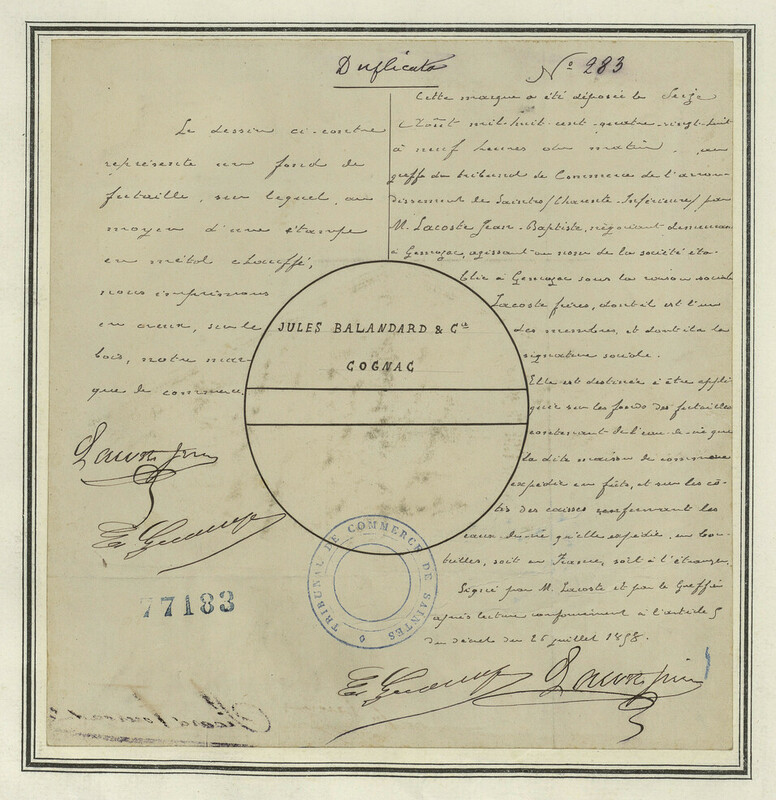 Duplicata
N° 283
Le dessin ci-contre
représente un fond de
futaille, sur lequel, au
moyen d'une étampe
en métal chauffé,
nous imprimons
en creux, sur le
bois, notre mar-
que de commerce.
Cette marque a été déposée le Seize
Août mil-huit-cent-quatre-vingt-huit
à neuf heures du matin, au
greffe du tribunal de Commerce de l'arron-
dissement de Saintes (Charente-Inférieure) par
M. Lacoste Jean-Baptiste, négociant demeurant
à Gemozac, agissant au nom de la société éta-
blie à Gemozac sous la raison sociale
Lacoste frères, dont il est l'un
des membres, et dont il a la
signature sociale.
Elle est destinée à être appli-
quée sur les fonds des futailles
contenant de l'eau-de-vie que
la dite maison de commerce
expédie en fûts, et sur les cô-
tés des caisses renfermant les
eaux-de-vie qu'elle expédie, en bou-
teilles, soit en France, soit à l'étranger.
Signé par M. Lacoste et par le Greffier
après lecture conformément à l'article 5
du décret du 26 juillet 1858.
JULES BALANDARD & Cie
COGNAC
TRIBUNAL DE COMMERCE DE SAINTES
77183